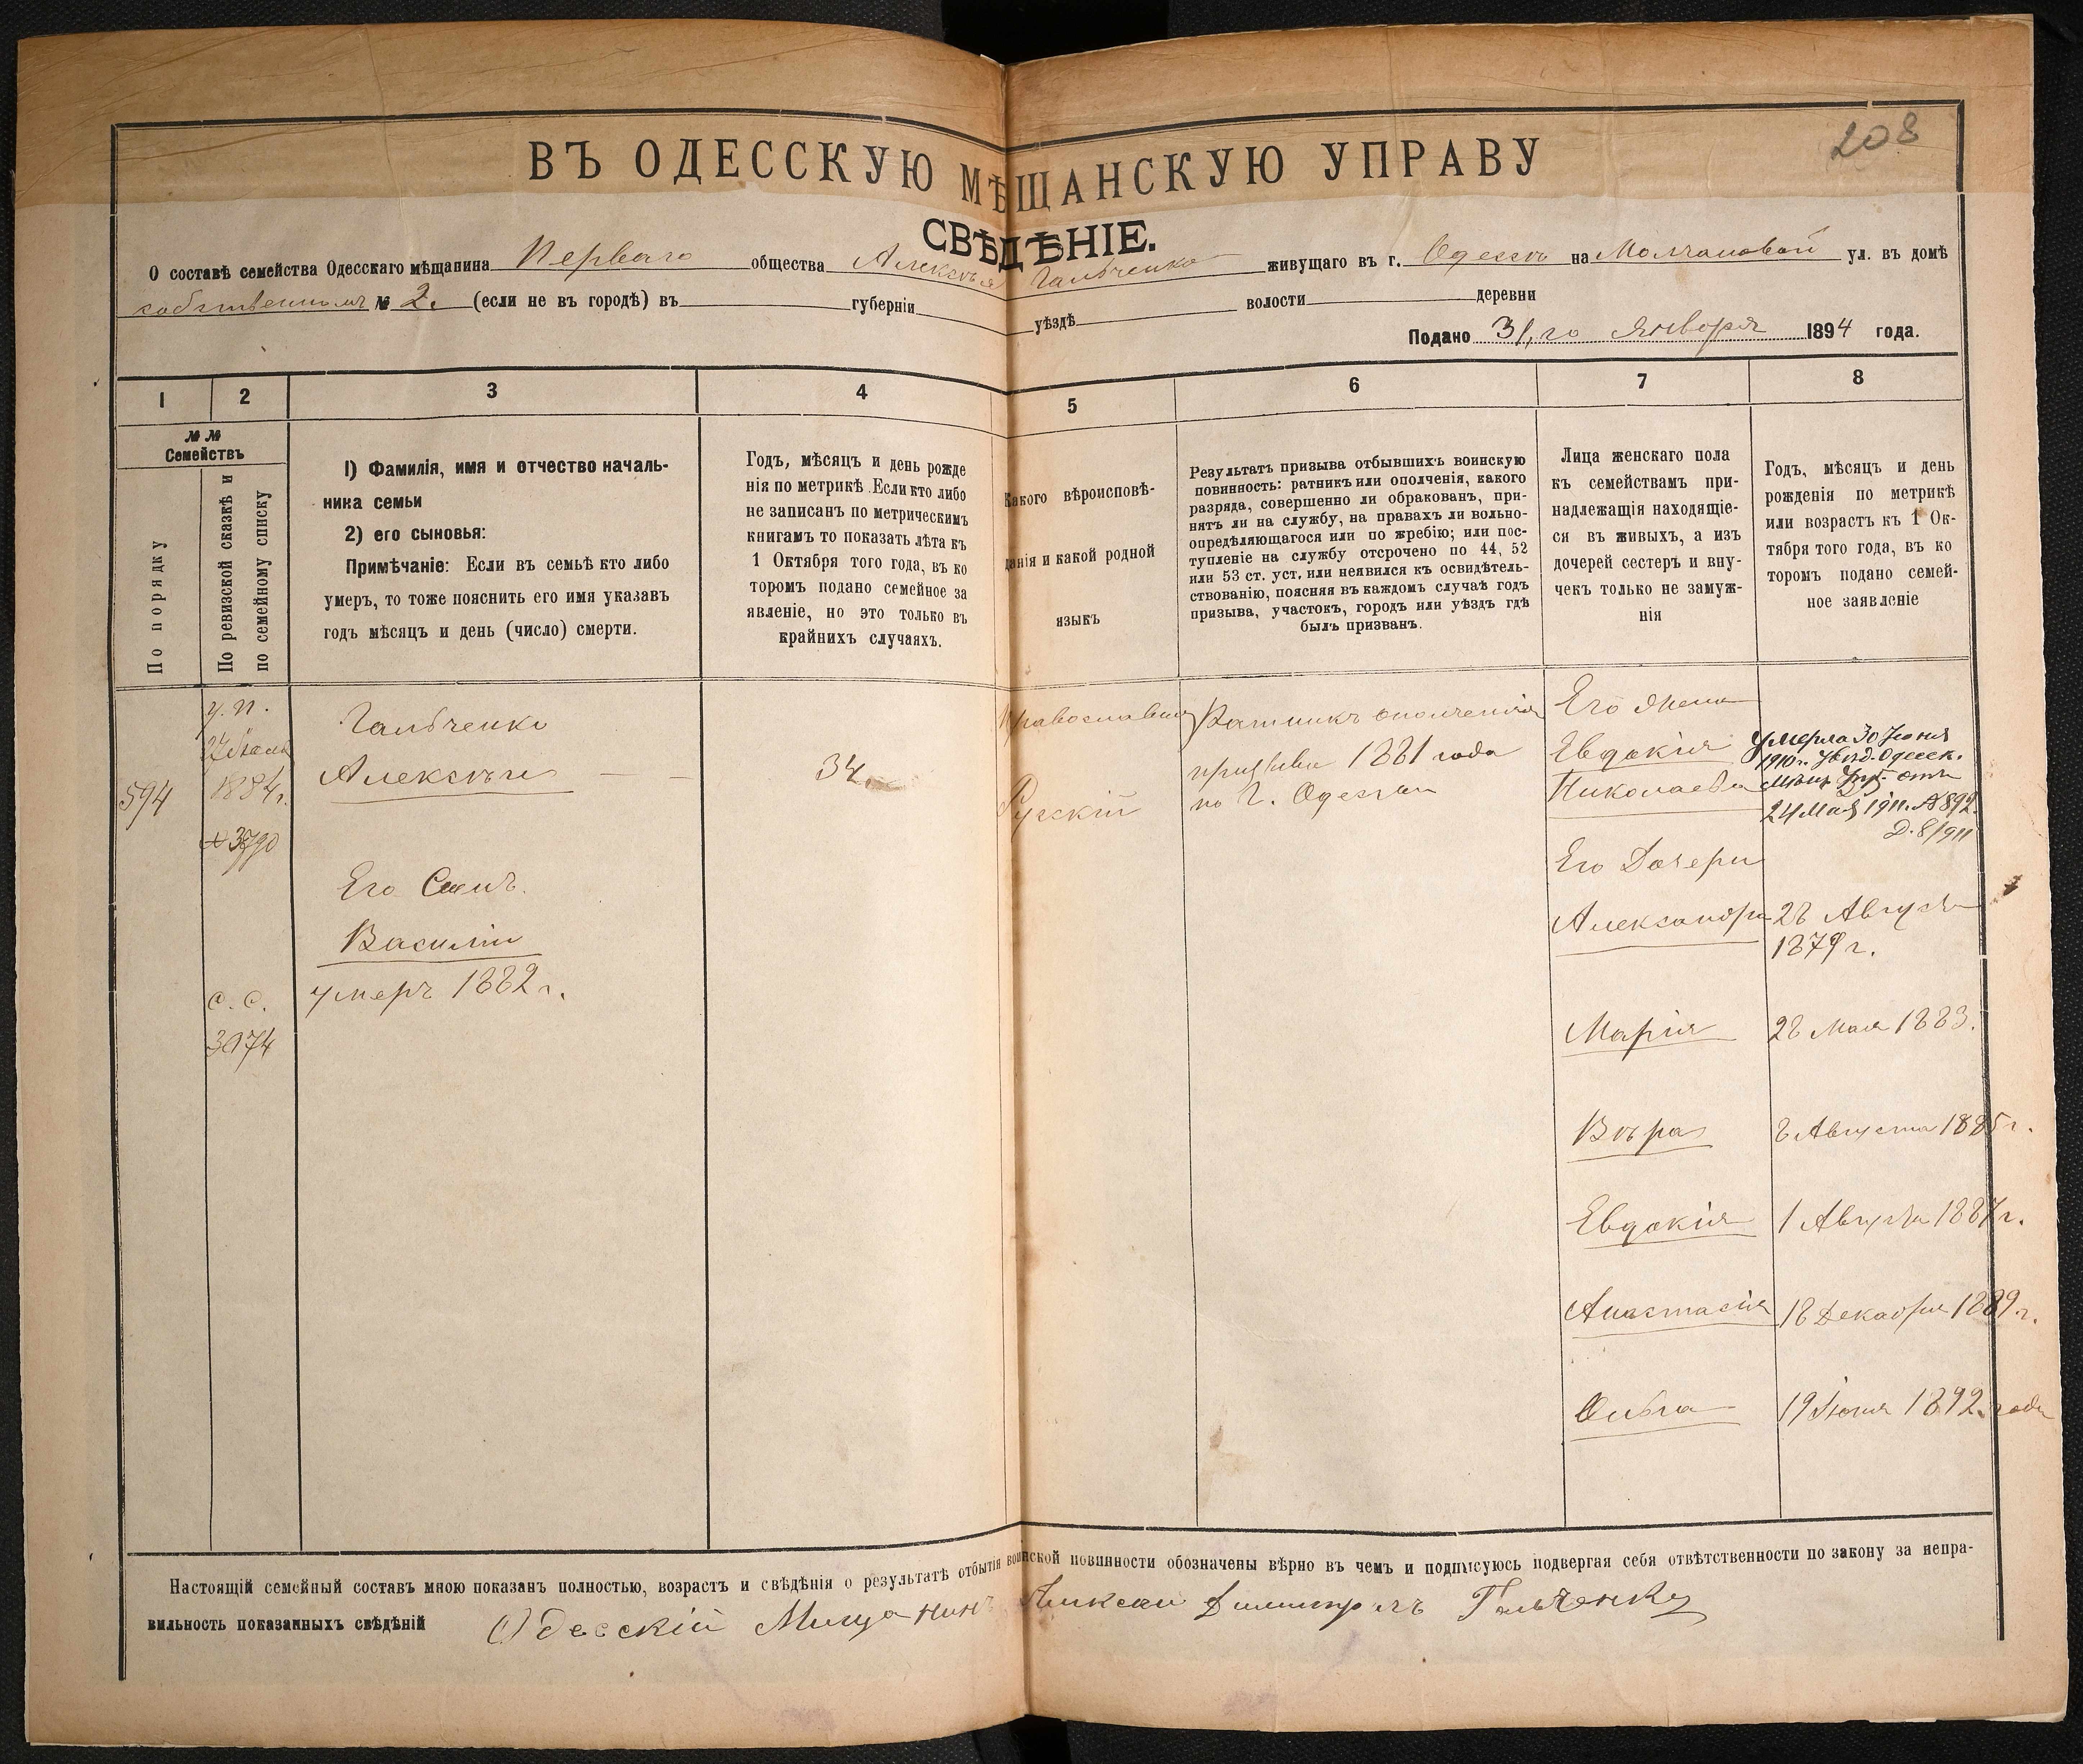 208
ВЪ ОДЕССКУЮ МѢЩАНСКУЮ УПРАВУ
СВѢДѢНІЕ.
О составѣ семейства Одесскаго мѣщанина Перваго общества Алексѣя Гальченко живущаго въ г. Одессѣ на Молчановой ул. въ домѣ
собственномъ № 2. (если не въ городѣ) въ губерніи уѣздѣ волости деревни
Подано 31,го Января 1894 года.
1 2 3 4 5 6 7 8
№ №
Семействъ
По порядку
По ревизской сказкѣ и
по семейному списку
1) Фамилія, имя и отчество началь-
ника семьи
2) его сыновья:
Примѣчаніе: Если въ семьѣ кто либо
умеръ, то тоже пояснить его имя указавъ
годъ мѣсяцъ и день (число) смерти.
Годъ, мѣсяцъ и день рожде
нія по метрикѣ. Если кто либо
не записанъ по метрическимъ
книгамъ то показать лѣта къ
1 Октября того года, въ ко
торомъ подано семейное за
явленіе, но это только въ
крайнихъ случаяхъ.
Какого вѣроисповѣ-
данія и какой родной
языкъ
Результатъ призыва отбывшихъ воинскую
повинность: ратникъ или ополченія, какого
разряда, совершенно ли обракованъ, при-
нятъ ли на службу, на правахъ ли вольно-
опредѣляющагося или по жребію; или пос-
тупленіе на службу отсрочено по 44, 52
или 53 ст. уст. или неявился къ освидѣтель-
ствованію, поясняя въ каждомъ случаѣ годъ
призыва, участокъ, городъ или уѣздъ гдѣ
былъ призванъ.
Лица женскаго пола
къ семействамъ при-
надлежащія находящіе-
ся въ живыхъ, а изъ
дочерей сестеръ и вну-
чекъ только не замуж-
нія
Годъ, мѣсяцъ и день
рожденія по метрикѣ
или возрастъ къ 1 Ок-
тября того года, въ ко
торомъ подано семей-
ное заявленіе
594
у. п.
1884 г.
3790
с. с.
3074
Гальченко
Алексѣй
Его Сынъ.
Василій
умеръ 1882 г.
34.
Православный
Русскій
Ратникъ ополченія
призыва 1881 года
по г. Одессы
Его Жена
Евдокія
Николаева
Умерла 30 Іюня
1910 г. Увѣд. Одесск.
Мѣщ. Упр. отъ
24 Мая 1911 г. № 892.
Д. 8/911
Его Дочери
Александра 28 Августа
1879 г.
Марія 28 Мая 1883.
Вѣра 8 Августа 1885 г.
Евдокія 1 Августа 1887 г.
Анастасія 18 Декабря 1889 г.
Ольга 19 Іюня 1892. года
Настоящій семейный составъ мною показанъ полностью, возрастъ и свѣдѣнія о результатѣ отбытія воинской повинности обозначены вѣрно въ чемъ и подписуюсь подвергая себя отвѣтственности по закону за непра-
вильность показанныхъ свѣдѣній Одесскій Мищанинъ Гальченку